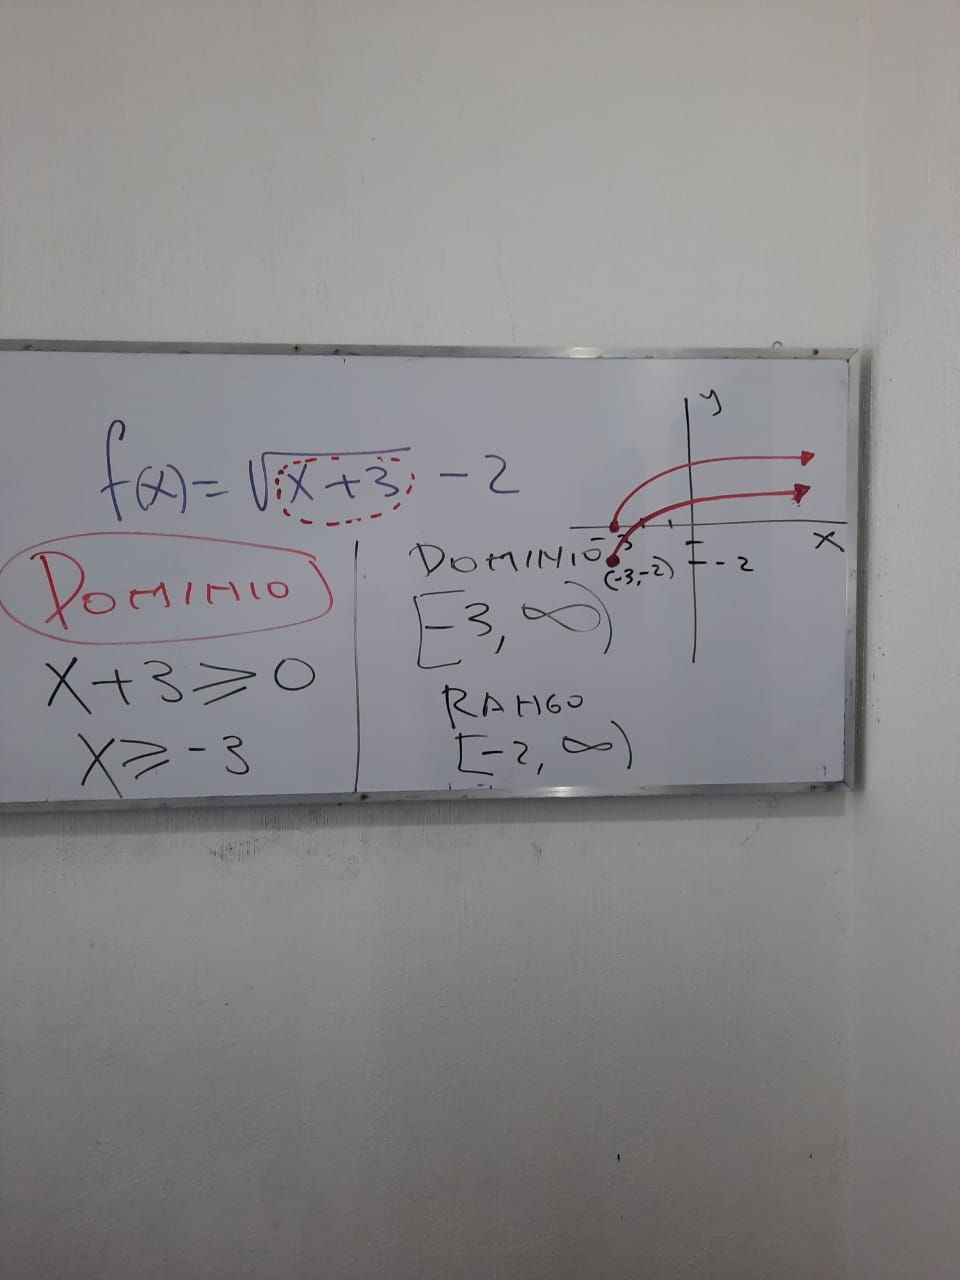 f(x) = √x+3 - 2
DOMINIO
x+3 ⩾ 0
x ⩾ -3
DOMINIO
[-3, ∞)
RANGO
[-2, ∞)
y
x
-3
(-3,-2)
-2